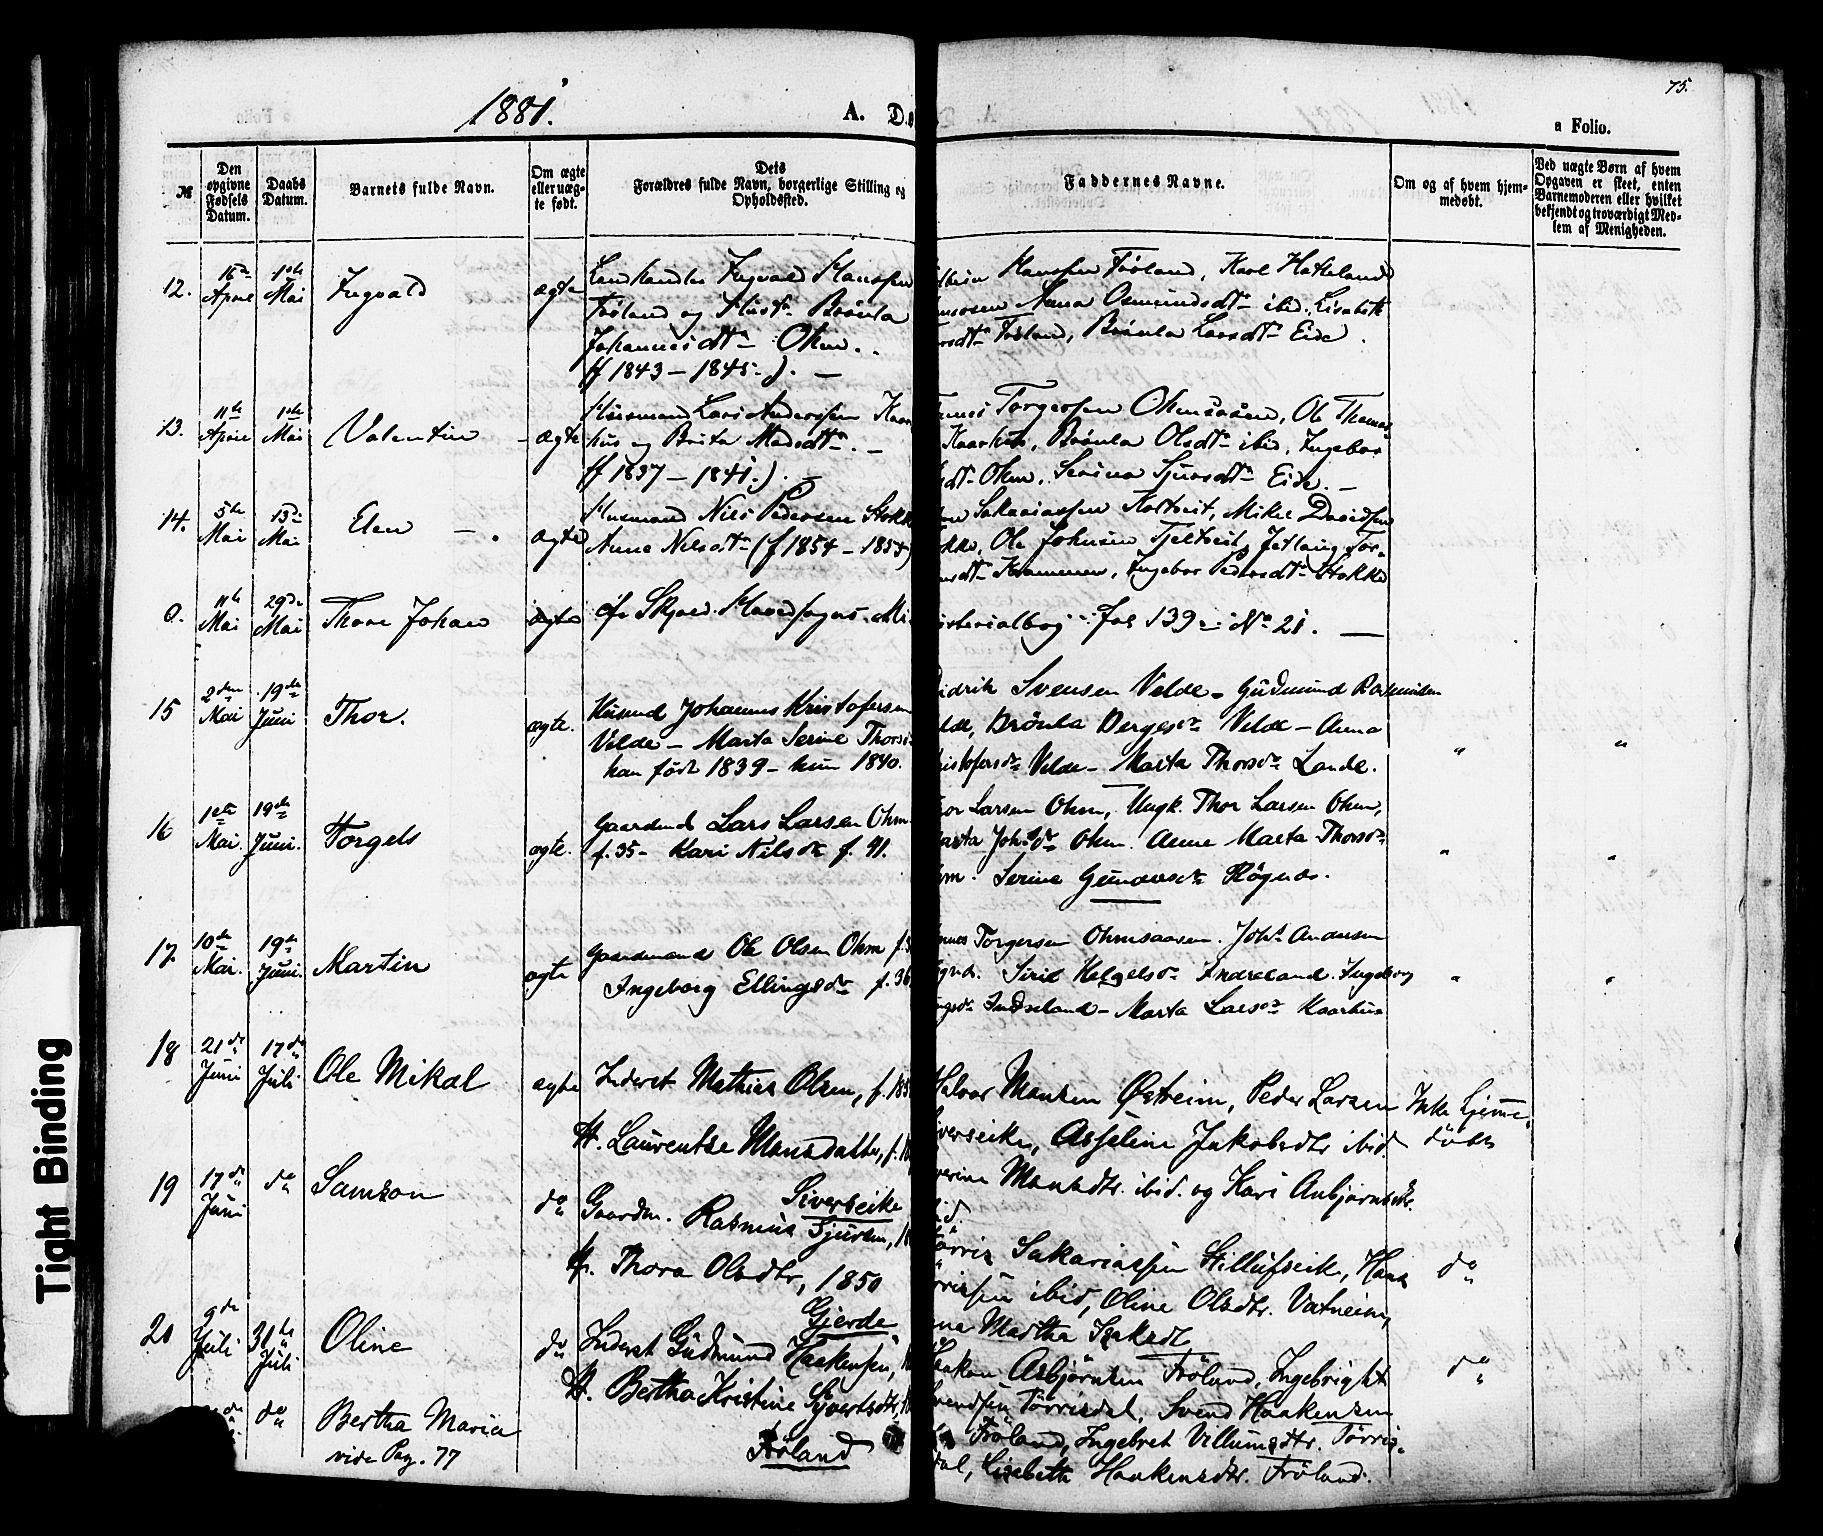 1881.
A. D
75.
a Folio.
№
Den opgivne Fødsels Datum.
Daabs Datum.
Barnets fulde Navn.
Om ægte eller uægte født.
Dets Forældres fulde Navn, borgerlige Stilling og Opholdssted.
Faddernes Navne.
Om og af hvem hjemmedøbt.
Ved uægte Børn af hvem Opgaven er skeet, enten Barnemoderen eller hvilket bekjendt og troværdigt Medlem af Menigheden.
12.
16de April
1ste Mai
Ingvald
ægte
Ingvald Hanssen
Frøland og Hust. Brönla
Johannesdtr Ohm.
(f 1843 – 1845.). –
Hanssen Frøland, Karl Hakeland
Anna Osmundsdtr ibid. Lisabeth
Frøland, Brönla Larsdtr Eide.
13.
11te April
1ste Mai
Valentin
ægte
Husmand Lars Anderssen Kaar
hus og Brita Madsdtr. –
(f 1837 – 1841.). –
Torgersen Ohmsåsen, Ole Thomas
Kaarhus, Brönla Olsdtr ibid, Ingebor
Ohm, Serina Sjursdtr Eide. –
14.
5te Mai
15de Mai
Elen
ægte
Husmand Nils Pedersen Stokke
Anne Nilsdtr (f 1854 – 1854)
Sakariassen Kortveit, Mikel Davidsen
Ole Johnsen Tjeltveit, Jetlaug Tor-
Krammen, Ingebor Pedersdtr Stokke
0.
11te Mai
29de Mai
Thore Johan
ægte
cfr Skjold Hovedsogns Mi
nisterialbog Fol 139 No 21. –
15
2den Mai
19de Juni
Thor.
ægte.
Husmd Johannes Kristofersen
Velde – Marta Serine Thorsd
han født 1839 – hun 1840.
Svensen Velde – Gudmund Rasmussen
Brönla Bergesdr Velde – Anna
Kristofersdr Velde – Marta Thorsdr Lande.
"
"
16
1ste Mai.
19de Juni.
Torgels
ægte.
Gaardmd Lars Larsen Ohm
f. 35 – Kari Nilsdr f. 41.
Larsen Ohm, Ungk. Thor Larsen Ohm,
Marta Johsdr Ohm. Anne Marta Thorsdr
Serine Gundersdr Høgnds.
"
"
17
10de Mai.
19de Juni.
Martin
ægte
Gaardmand Ole Olsen Ohm f.3
Ingeborg Ellingsdr f. 36
Torgersen Ohmsaasen. Johs Andersen
Siril Helgelsdr Indreland. Ingeborg
Indreland – Marta Larsdr Kaarhus
"
"
18
21de Juni
17de Juli
Ole Mikal
ægte
Inderst Mathias Olsen, f. 185
H. Laurentse Monsdatter, f. 18
Siverseike
Halvor Monsen Østreim, Peder Larsen
Siverseike, Asseline Jakobsdtr ibid.
Severine Monsdtr. ibid. og Kari Anbjørnsdtr
Ikke hjemmedøbt
19
17de Juni
do
Samson
do
Gaardm. Rasmus Sjursen, 18
H. Thora Olsdtr, 1850
Gjerde
Sakariassen Stillufseik, Hans
ibid, Oline Olsdtr. Vatneim,
Martha Isaksdtr
do
20
9de Juli
31te Juli
Oline
do
Inderst Gudmund Haakensen, 18
H. Bertha Kristine Syvertsdtr, 18
Frøland
Haakon Asbjørnsen Frøland, Ingebright
Svendsen Tørrisdal, Svend Haakensen
Frøland, Ingebret Villumsdtr. Tørris-
dal, Lisabeth Haakensdtr. Frøland.
do
do
Bertha Maria
vide Pag. 77
Tight Binding